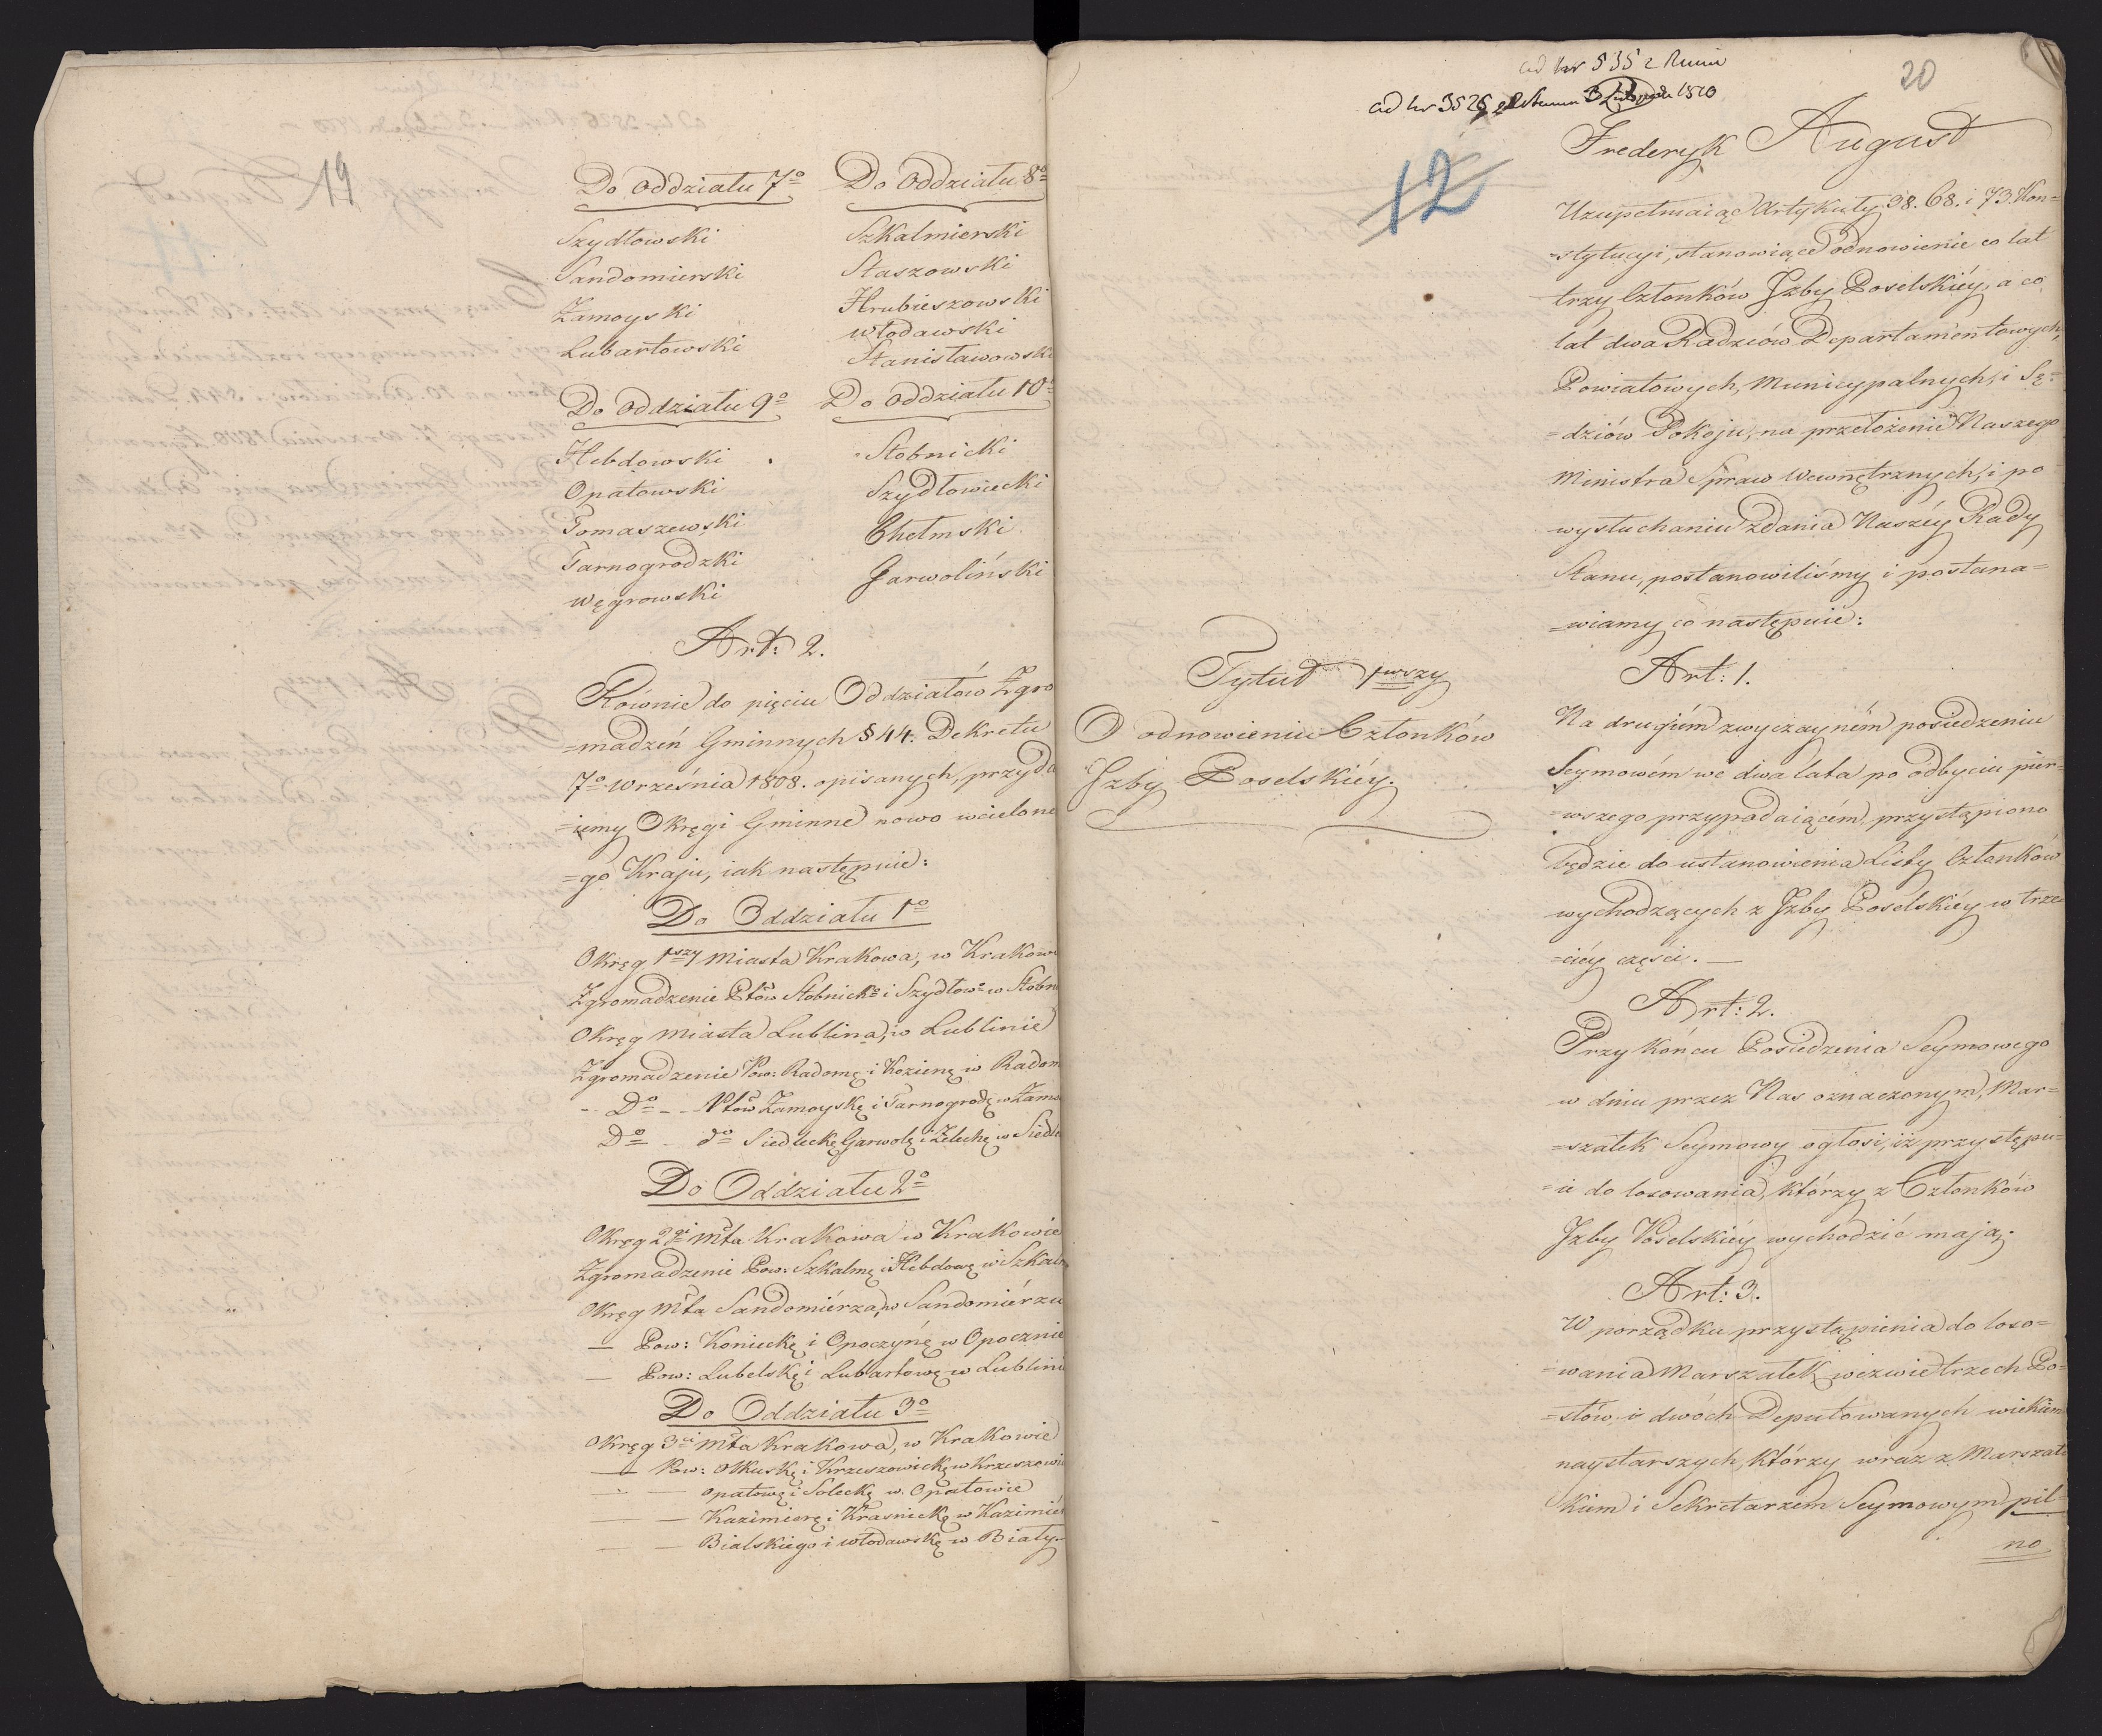 19
Do Oddziału 7º
Szydłowski
Sandomierski
Zamoyski
Lubartowski
Do Oddziału 8º
Szkalmierski
Staszowski
Hrubieszowski
Włodawski
Stanisławowski
Do Oddziału 9º
Hebdowski
Opatowski
Tomaszewski
Tarnogrodzki
Węgrowski
Do Oddziału 10º
Stobnicki
Szydłowiecki
Chełmski
Garwoliński
Art: 2.
Równie do pięciu Oddziałów Zgro
=madzeń Gminnych § 44. Dekretu
7º Września 1808. opisanych, przyda
=iemy Okręgi Gminne nowo wcielone
=go Kraju, iak następuie:
Do Oddziału 1º
Okręg 1szy Miasta Krakowa, w Krakowi
Zgromadzenie Ptów Stobnickº i Szydłowº w Stobn
Okręg Miasta Lublina, w Lublinie
Zgromadzenie Pow: Radomę i Kozienę w Radom
- Dº - - Ptów Zamoyskę i Tarnogrodę w Zamo
Dº - dº Siedleckę Garwolę i Żelechę w Siedl
Do Oddziału 2º
Okręg 2gi Mta Krakowa w Krakowie
Zgromadzenie Pow: Szkalmę i Hebdowę w Szkal
Okręg Mta Sandomiérza, w Sandomiérzu
— Pow: Konieckę i Opoczynę w Opocznie
— Pow: Lubelskę i Lubartowę w Lublini
Do Oddziału 3º
Okręg 3ci Mta Krakowa, w Krakowie
— Pow: Olkuskę i Krzeszowickę w Krzeszowi
— — Opatowę i Soleckę w Opatowie
— — Kazimierę i Kraśnickę w Kazimié
— — Bialskiego i Włodawskę w Biały
ad nr 535 z
ad nr 3526 1810
20
12
Frederyk August
Uzupełniaiąc Artykuły 38. 68. i 73. Kon=
=stytucyi, stanowiące odnowienie co lat
trzy Członków Izby Poselskiéy, a co
lat dwa Radzców Departamentowych,
Powiatowych, Municypalnych, i Sę=
=dziów Pokoju, na przełożenie Naszego
Ministra Spraw Wewnętrznych, i po
wysłuchaniu zdania Naszéy Rady
Stanu, postanowiliśmy i postana=
=wiamy co następuie:
Tytuł 1wszy
O odnowieniu Członków
Izby Poselskiéy.
Art: 1.
Na drugiém zwyczayném posiedzeniu
Seymowém we dwa lata po odbyciu pier=
=wszego przypadaiącém, przystąpiono
będzie do ustanowienia Listy Członków
wychodzących z Izby Poselskiéy w trze=
=ciéy części. —
Art: 2.
Przy Końcu Posiedzenia Seymowego
w dniu przez Nas oznaczonym, Mar=
=szałek Seymowy ogłosi, iż przystępu=
=ie do losowania, którzy z Członków
Izby Poselskiéy wychodzić mają.
Art: 3.
W porządku przystąpienia do loso=
=wania Marszałek wezwie trzech Po=
=słów i dwóch Deputowanych wiekiem
naystarszych, którzy wraz z Marszał
kiem i Sekretarzem Seymowym pil=
no